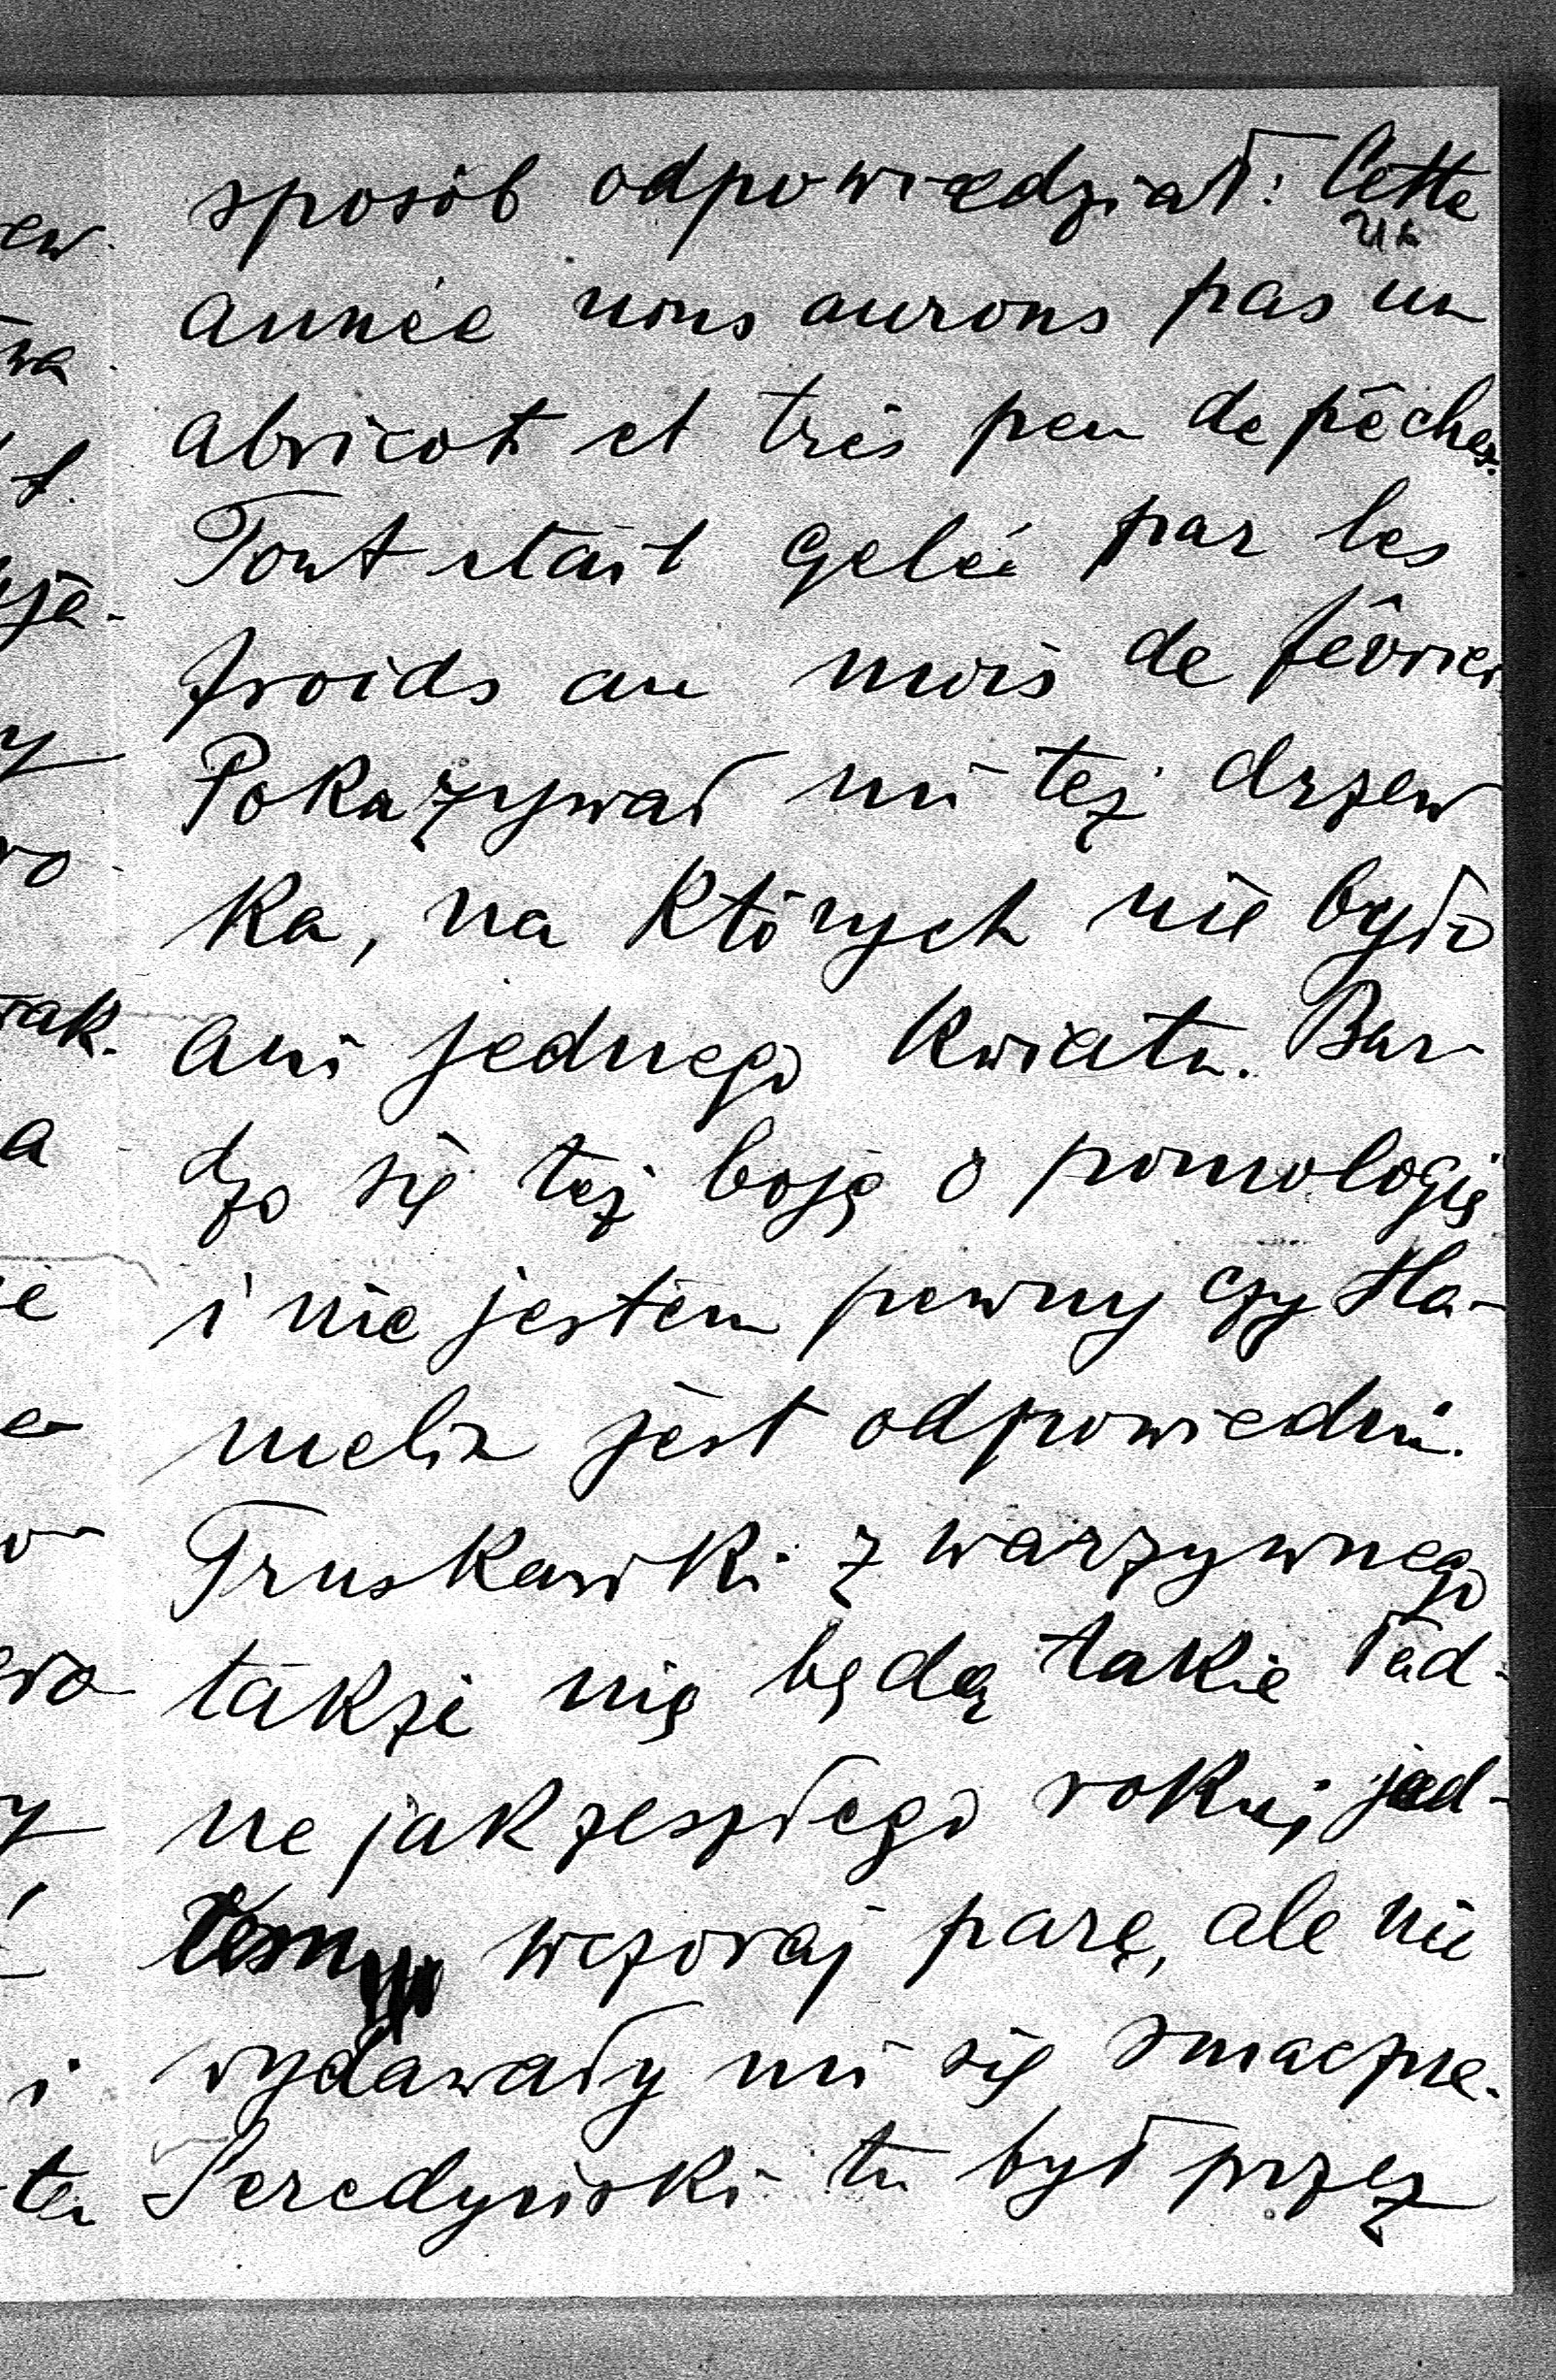 sposób odpowiedział: Cette
année nous aurons pas un
abricot et très peu de pêches.
Tout était gelée par les
froids au mois de fêvrier
Pokazywał mi też drzew
ka, na których nie było
ani jednego kwiatu. Bar-
dzo się też boję o pomologię
i nie jestem pewny czy Ha-
melia jest odpowiedni.
Truskawki z warzywnego
także nie będą takie ład-
ne jak zeszłego roku; jad-
łem wczoraj parę, ale nie
wydawały mi się smaczne.
Seredyński tu był przez